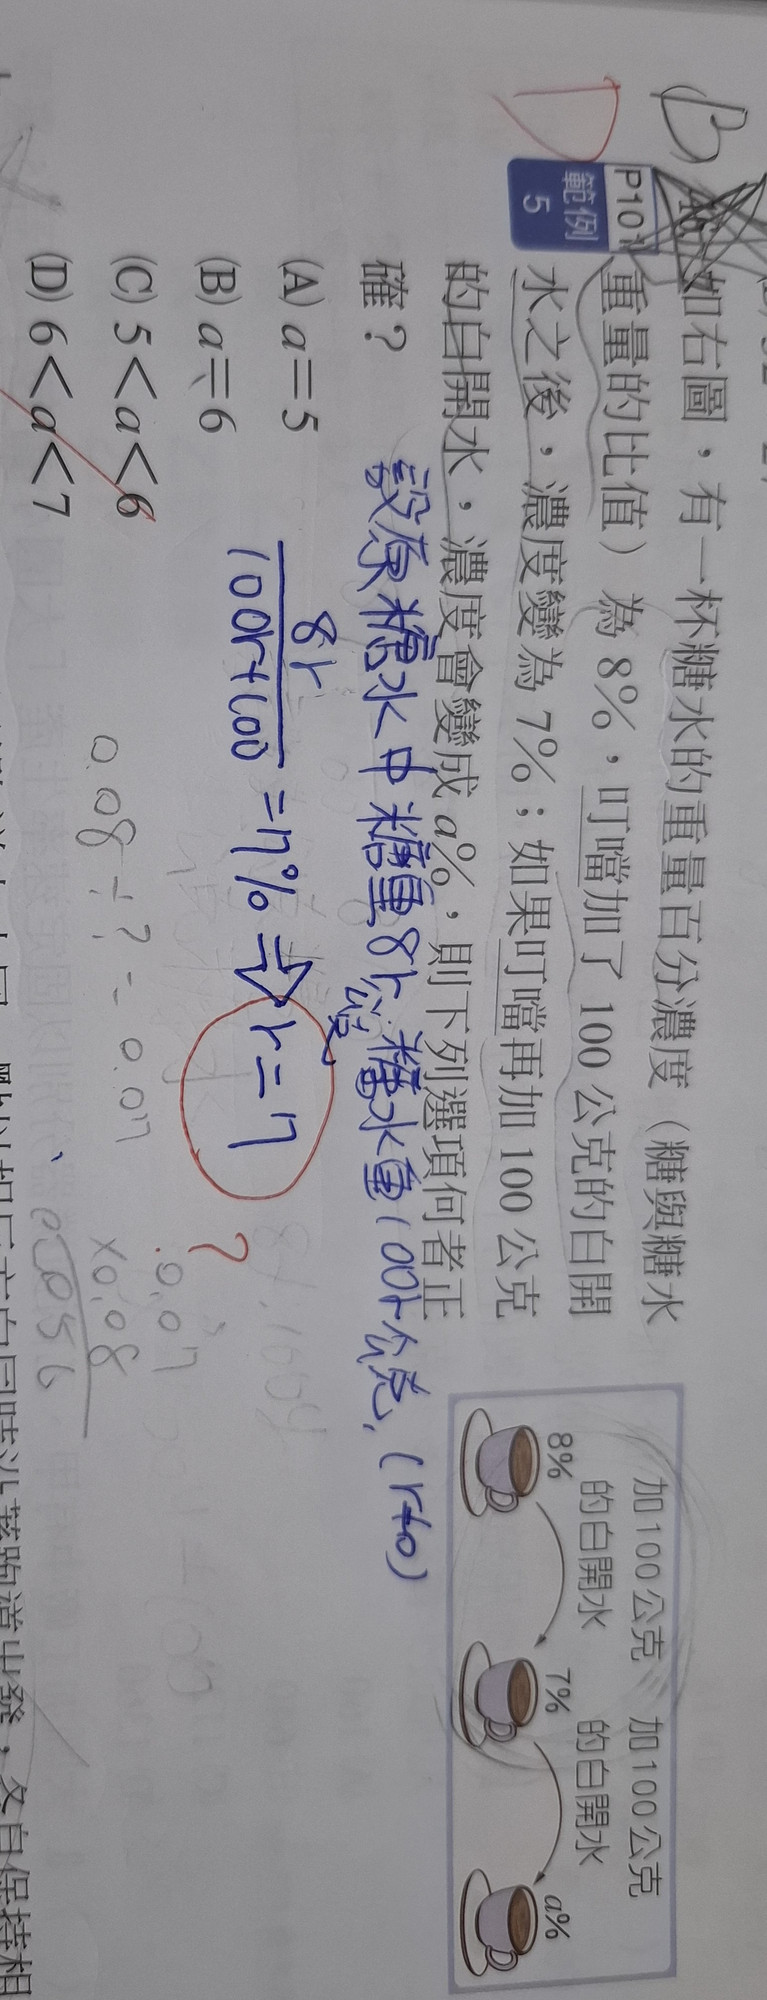 P101
範例
5
如右圖，有一杯糖水的重量百分濃度（糖與糖水
重量的比值）為 8%，叮噹加了 100 公克的白開
水之後，濃度變為 7%；如果叮噹再加 100 公克
的白開水，濃度會變成 a%，則下列選項何者正
確？
(A) a＝5
(B) a＝6
(C) 5＜a＜6
(D) 6＜a＜7
B
D
設原糖水中糖量8r公克, 糖水重100r公克, (r≠0)
8r
100r+100
=7% ⇒ r=7
?
0.08÷?=0.07
0.07
×0.08
0.056
加 100 公克
的白開水
加 100 公克
的白開水
8%
7%
a%